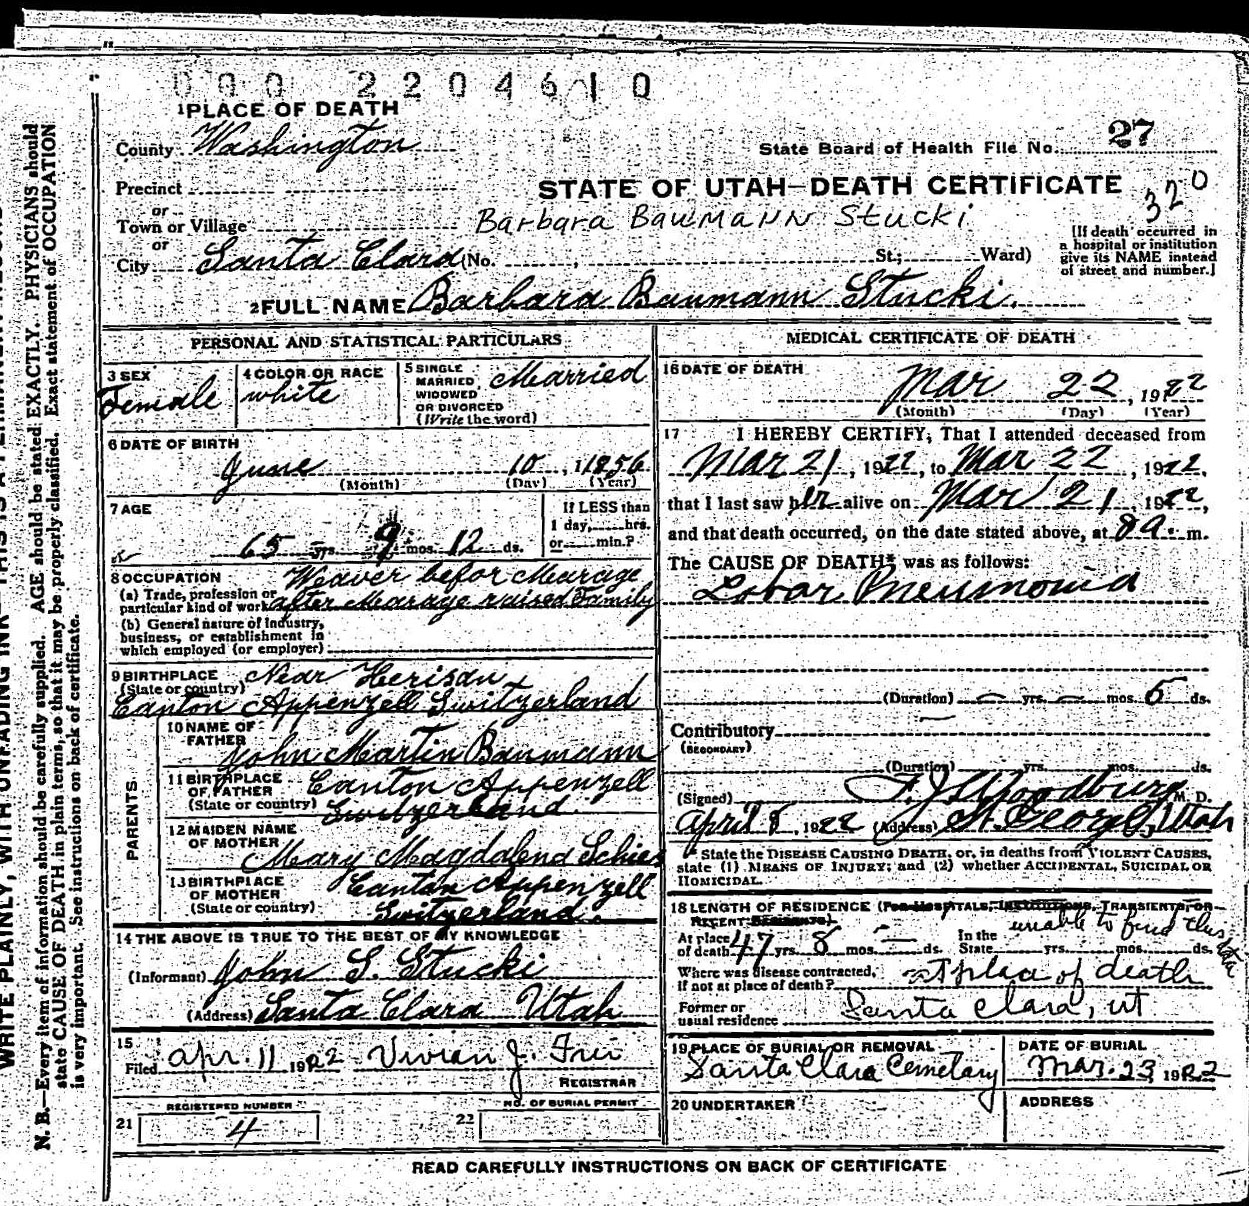 000 2204610
1 PLACE OF DEATH
County Washington
State Board of Health File No. 27
Precinct
STATE OF UTAH—DEATH CERTIFICATE
320
or
Town or Village
Barbara Baumann Stucki
or
City Santa Clara (No. , St.; Ward)
[If death occurred in
a hospital or institution
give its NAME instead
of street and number.]
2 FULL NAME Barbara Baumann Stucki.
PERSONAL AND STATISTICAL PARTICULARS
3 SEX
Female
4 COLOR OR RACE
white
5 SINGLE
MARRIED,
WIDOWED
OR DIVORCED
(Write the word)
Married
6 DATE OF BIRTH
June 10, 1856
(Month) (Day) (Year)
7 AGE
65 yrs. 9 mos. 12 ds.
If LESS than
1 day, hrs.
or min.?
8 OCCUPATION
(a) Trade, profession or
particular kind of work
Weaver befor Mearage
after Mearage raised Family
(b) General nature of Industry,
business, or establishment in
which employed (or employer)
9 BIRTHPLACE
(State or country)
Near Herisau
Canton Appenzell Switzerland
PARENTS
10 NAME OF
FATHER
John Martin Baumann
11 BIRTHPLACE
OF FATHER
(State or country)
Canton Appenzell
Switzerland.
12 MAIDEN NAME
OF MOTHER
Mary Magdalena Schies
13 BIRTHPLACE
OF MOTHER
(State or country)
Canton Appenzell
Switzerland.
14 THE ABOVE IS TRUE TO THE BEST OF MY KNOWLEDGE
(Informant) John S. Stucki
(Address) Santa Clara Utah
15
Filed Apr. 11 1922 Vivian J. Frei
REGISTRAR
REGISTERED NUMBER
21 4
NO. OF BURIAL PERMIT
22
MEDICAL CERTIFICATE OF DEATH
16 DATE OF DEATH
Mar 22, 1922
(Month) (Day) (Year)
17 I HEREBY CERTIFY, That I attended deceased from
Mar 21, 1922, to Mar 22, 1922,
that I last saw her alive on Mar 21 1922,
and that death occurred, on the date stated above, at 8 a. m.
The CAUSE OF DEATH* was as follows:
Lobar Pneumonia
(Duration) — yrs. — mos. 5 ds.
Contributory —
(SECONDARY)
(Duration) yrs. mos. ds.
(Signed) F. J. Woodbury M. D.
April 8, 1922 (Address) St. George, Utah
* State the DISEASE CAUSING DEATH, or, in deaths from VIOLENT CAUSES,
state (1) MEANS OF INJURY; and (2) whether ACCIDENTAL, SUICIDAL OR
HOMICIDAL.
18 LENGTH OF RESIDENCE (FOR HOSPITALS, INSTITUTIONS, TRANSIENTS, OR
RECENT RESIDENTS)
At place
of death 47 yrs. 8 mos. — ds.
In the
State yrs. mos. ds.
unable to find this data
Where was disease contracted,
if not at place of death? at place of death
Former or
usual residence Santa Clara, Ut
19 PLACE OF BURIAL OR REMOVAL
Santa Clara Cemetary
DATE OF BURIAL
Mar. 23, 1922
20 UNDERTAKER
ADDRESS
READ CAREFULLY INSTRUCTIONS ON BACK OF CERTIFICATE
N. B.—Every item of information should be carefully supplied. AGE should be stated EXACTLY. PHYSICIANS should
state CAUSE OF DEATH in plain terms, so that it may be properly classified. Exact statement of OCCUPATION
is very important. See instructions on back of certificate.
WRITE PLAINLY, WITH UNFADING INK—THIS IS A PERMANENT RECORD